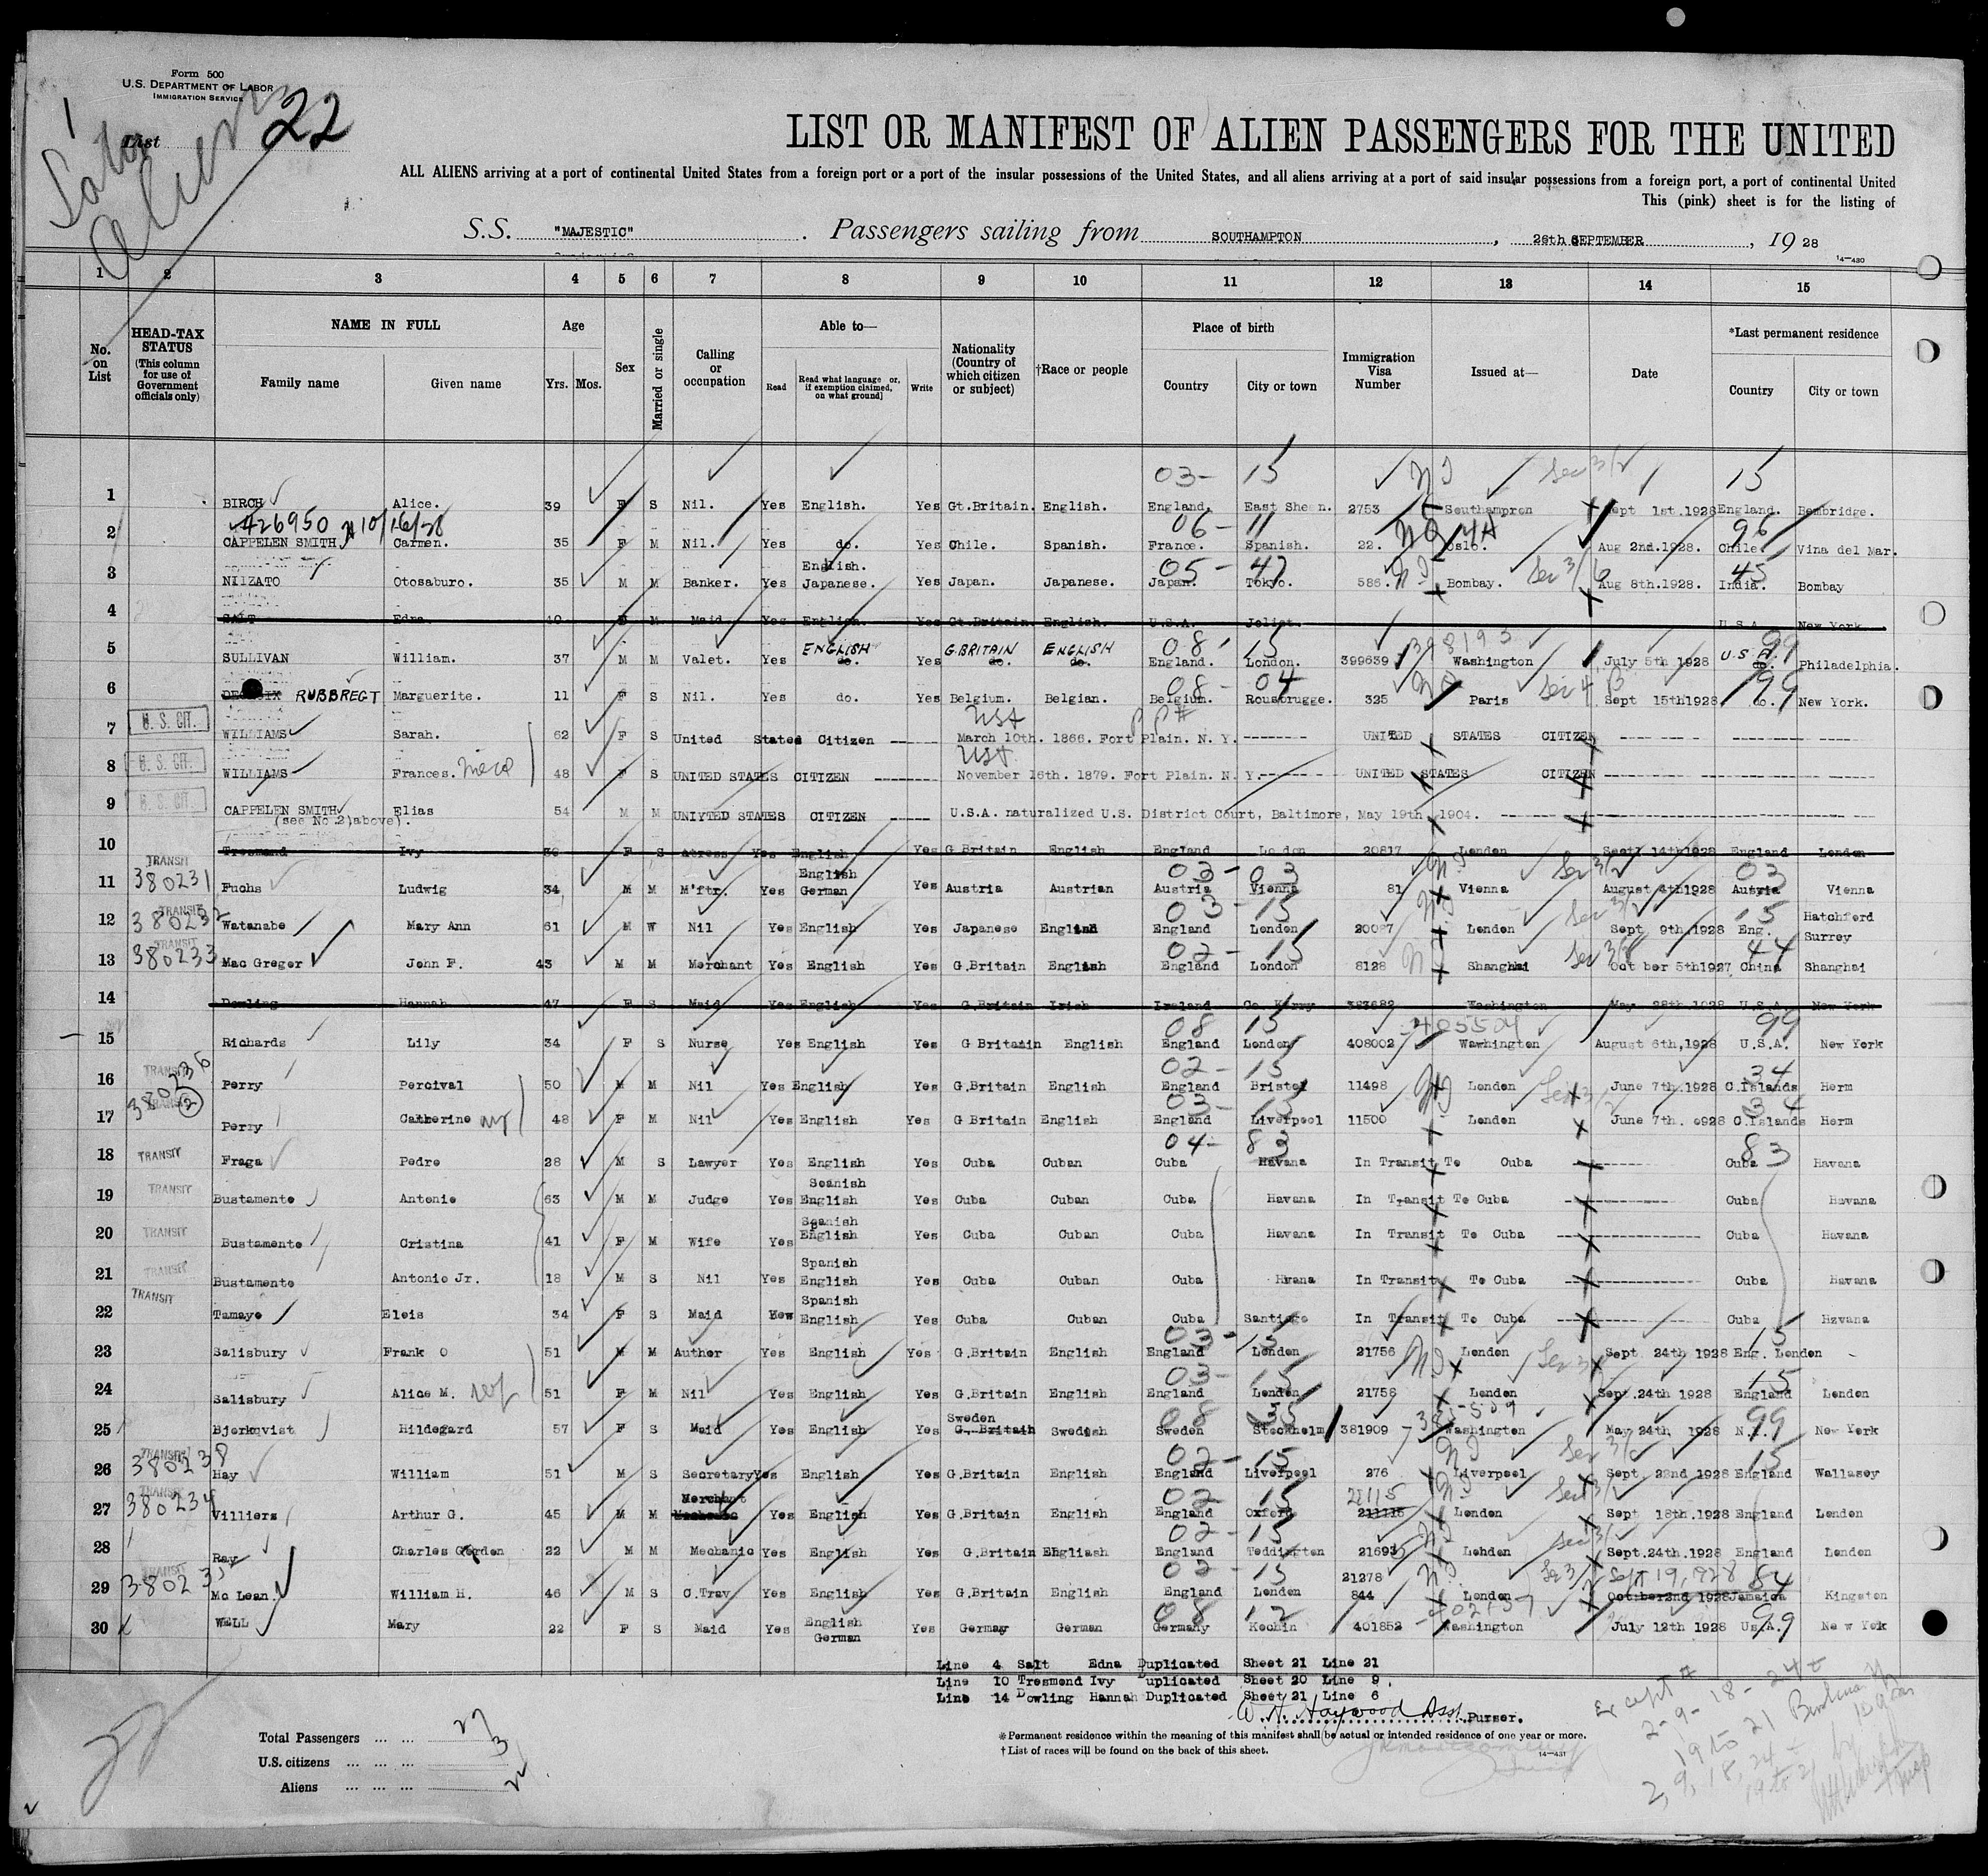 Form 500
U.S. DEPARTMENT OF LABOR
IMMIGRATION SERVICE
List 22
LIST OR MANIFEST OF ALIEN PASSENGERS FOR THE UNITED
ALL ALIENS arriving at a port of continental United States from a foreign port or a port of the insular possessions of the United States, and all aliens arriving at a port of said insular possessions from a foreign port, a port of continental United
This (pink) sheet is for the listing of
S.S. "MAJESTIC" Passengers sailing from SOUTHAMPTON, 26th SEPTEMBER, 1928
14-430
1 2 3 4 5 6 7 8 9 10 11 12 13 14 15
No. on List
HEAD-TAX STATUS (This column for use of Government officials only)
NAME IN FULL Family name Given name
Age Yrs. Mos.
Sex
Married or single
Calling or occupation
Able to— Read Read what language or, if exemption claimed, on what ground] Write
Nationality (Country of which citizen or subject)
†Race or people
Place of birth Country City or town
Immigration Visa Number
Issued at—
Date
*Last permanent residence Country City or town
03- 15 15
1 BIRCH Alice. 39 F S Nil. Yes English. Yes Gt.Britain. English. England. East Sheen. 2753 Southampton Sept 1st.1928 England. Bembridge.
426950 10/16/28 06- 11 96
2 CAPPELEN SMITH. Carmen. 35 F M Nil. Yes do. Yes Chile. Spanish. France. Spanish. 22. Oslo. Aug 2nd.1928. Chile Vina del Mar.
English. 05- 47 45
3 NIIZATO Otosaburo. 35 M M Banker. Yes Japanese. Yes Japan. Japanese. Japan. Tokyo. 586. Bombay. Aug 8th.1928. India. Bombay
4 SALT Edna 40 F M Maid Yes English. Yes Gt.Britain English. U.S.A. Joliet. U.S.A. New York
ENGLISH G.BRITAIN ENGLISH 08- 15 398193 U.S.A. 99
5 SULLIVAN William. 37 M M Valet. Yes do. Yes do. do. England. London. 399639 Washington July 5th 1928 do. Philadelphia.
08- 04 99
6 RUBBREGT Marguerite. 11 F S Nil. Yes do. Yes Belgium. Belgian. Belgium. Rousbrugge. 325 Paris Sept 15th1928 do. New York.
U.S. CIT.
7 WILLIAMS Sarah. 62 F S United States Citizen ----- March 10th. 1866. Fort Plain. N. Y. -------- UNITED STATES CITIZEN
U.S. CIT.
8 WILLIAMS Frances. niece 48 F S UNITED STATES CITIZEN -------- November 16th. 1879. Fort Plain. N. Y.-------- UNITED STATES CITIZEN
U.S. CIT.
9 CAPPELEN SMITH Elias 54 M M UNIYTED STATES CITIZEN ----- U.S.A. naturalized U.S. District Court, Baltimore, May 19th 1904.
(see No 2)above).
10 Tresmand Ivy 30 F S Atress Yes English Yes G Britain English England London 20817 London Sept 14th1928 England London
TRANSIT
380231 English 03- 03 03
11 Fuchs Ludwig 34 M M M'ftr. Yes German Yes Austria Austrian Austria Vienna 81 Vienna August 4th1928 Austria Vienna
TRANSIT
380232 03- 15 15
12 Watanabe Mary Ann 61 M W Nil Yes English Yes Japanese England England London 20087 London Sept 9th.1928 Eng. Hatchford Surrey
TRANSIT
380233 02- 15 44
13 Mac Gregor John F. 43 M M Merchant Yes English Yes G.Britain English England London 8128 Shanghai Oct ber 5th1927 China Shanghai
14 Dowling Hannah 47 F S Maid Yes English Yes G.Britain Irish Ireland Co. Kerry 383682 Washington May 28th 1928 U.S.A. New York
08 15 405504 99
15 Richards Lily 34 F S Nurse Yes English Yes G Britain English England London 408002 Washington August 6th,1928 U.S.A. New York
TRANSIT
380236 02- 15 34
16 Perry Percival 50 M M Nil Yes English Yes G.Britain English England Bristol 11498 London June 7th.1928 C.Islands Herm
TRANSIT
2 03- 15 34
17 Perry Catherine 48 F M Nil Yes English Yes G Britain English England Liverpool 11500 London June 7th. 0928 C.Islands Herm
04- 83 83
18 TRANSIT Fraga Pedro 28 M S Lawyer Yes English Yes Cuba Cuban Cuba Havana In Transit To Cuba Cuba Havana
Spanish
19 TRANSIT Bustamente Antonio 63 M M Judge Yes English Yes Cuba Cuban Cuba Havana In Transit To Cuba Cuba Havana
Spanish
20 TRANSIT Bustamente Cristina 41 F M Wife Yes English Yes Cuba Cuban Cuba Havana In Transit To Cuba Cuba Havana
Spanish
21 TRANSIT Bustamente Antonio Jr. 18 M S Nil Yes English Yes Cuba Cuban Cuba Hvana In Transit To Cuba Cuba Havana
Spanish
22 TRANSIT Tamayo Elois 34 F S Maid English Yes Cuba Cuban Cuba Santiago In Transit To Cuba Cuba Havana
03- 15 15
23 Salisbury Frank O 51 M M Author Yes English Yes G.Britain English England London 21756 London Sept 24th 1928 Eng. London
03- 15 15
24 Salisbury Alice M. 51 F M Nil Yes English Yes G.Britain English England London 21758 London Sept.24th 1928 England London
Sweden 08 35 385509 99
25 Bjorkqvist Hildegard 57 F S Maid Yes English Yes G. Britain Swedish Sweden Stockholm 381909 Washington May 24th 1928 N.Y. New York
TRANSIT
380238 02- 15 15
26 Hay William 51 M S Secretary Yes English Yes G.Britain English England Liverpool 276 Liverpool Sept. 22nd.1928 England Wallasey
TRANSIT
380234 Merchant 02- 15 21115
27 Villiers Arthur G. 45 M M Mechanic Yes English Yes G.Britain English England Oxford 211115 London Sept 18th.1928 England London
02- 15
28 Ray Charles Gordon 22 M M Mechanic Yes English Yes G.Britain English England Teddington 21693 London Sept.24th.1928 England London
TRANSIT
380235 02- 15 21278 Sept 19, 1928 84
29 Mc Lean. William H. 46 M S C.Trav. Yes English Yes G.Britain English England London 844 London October2nd 1928 Jamaica Kingston
08 12 402157 99
30 WELL Mary 22 F S Maid Yes English German Yes Germay German Germany Kochin 401852 Washington July 12th 1928 UsA. Ne w Yok
Line 4 Salt Edna Duplicated Sheet 21 Line 21
Line 10 Tresmond Ivy Duplicated Sheet 20 Line 9.
Line 14 Dowling Hannah Duplicated Sheet 21 Line 6
W. H. Haywood Asst. Purser.
Total Passengers ... ... 27
U.S. citizens ... ... ... 3
Aliens ... ... ...
*Permanent residence within the meaning of this manifest shall be actual or intended residence of one year or more.
†List of races will be found on the back of this sheet.
14-431